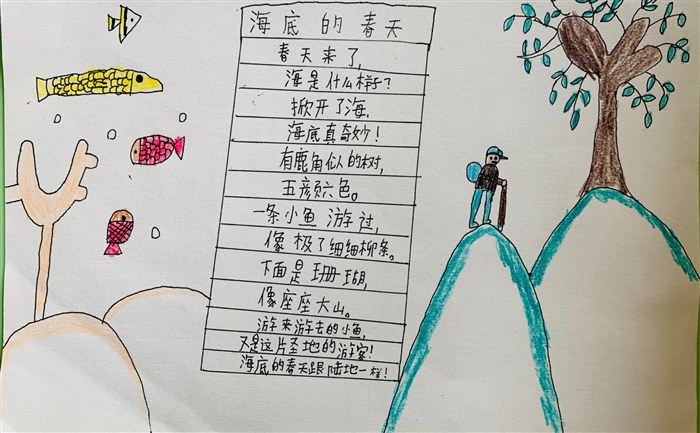 海底的春天
春天来了,
海是什么样子?
掀开了海,
海底真奇妙!
有鹿角似的树,
五颜六色。
一条小鱼游过,
像极了细细柳条。
下面是珊瑚,
像座座大山。
游来游去的小鱼,
又是这片圣地的游客!
海底的春天跟陆地一样!